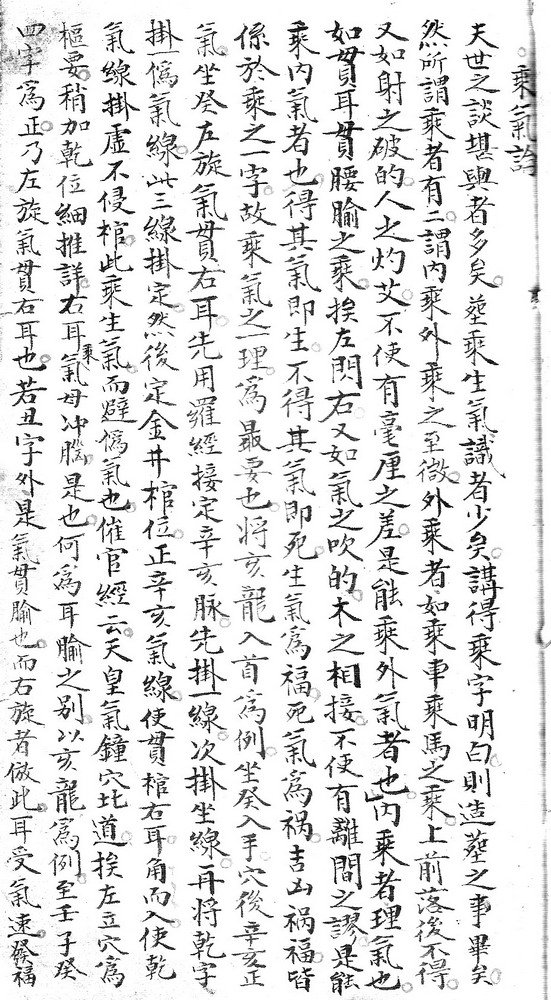 乘氣論
夫世之談堪輿者多矣塟乘生氣識者少矣講得乘字明白則造塟之事畢矣
然所謂乘者有二謂內乘外乘之至微外乘者如乘車乘馬之乘上前落後不得
又如射之破的人之灼艾不使有毫厘之差是能乘外氣者也內乘者理氣也
如貫耳貫腰腧之乘挨左閃右又如氣之吹的木之相接不使有離間之謬是能
乘內氣者也得其氣即生不得其氣即死生氣為福死氣為禍吉凶禍福皆
係於乘之一字故乘氣之一理為最要也將亥龍入首為例坐癸入手穴後辛亥正
氣坐癸左旋氣貫右耳先用羅經接定辛亥脉先掛一線次掛坐線再將乾字
掛一僞氣線此三線掛定然後定金井棺位正辛亥氣線使貫棺右耳角而入使乾
氣線掛虛不侵棺此乘生氣而避僞氣也催官經云天皇氣鐘穴北道挨左立穴為
樞要稍加乾位細推詳右耳乘氣毋冲腦是也何為耳腧之别以亥龍為例至壬子癸
四字為正乃左旋氣貫右耳也若丑字外是氣貫腧也而右旋者倣此耳受氣速發福